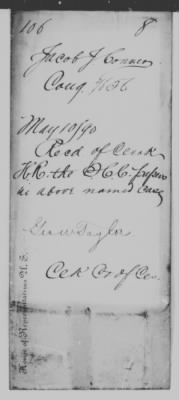 106 8
Jacob J Connor
Cong 7676
May 10/90
Recd of Clerk
H.R. the
in above named Case
Geo W Taylor
Clk Ct of Cls.
House of Representatives U.S.